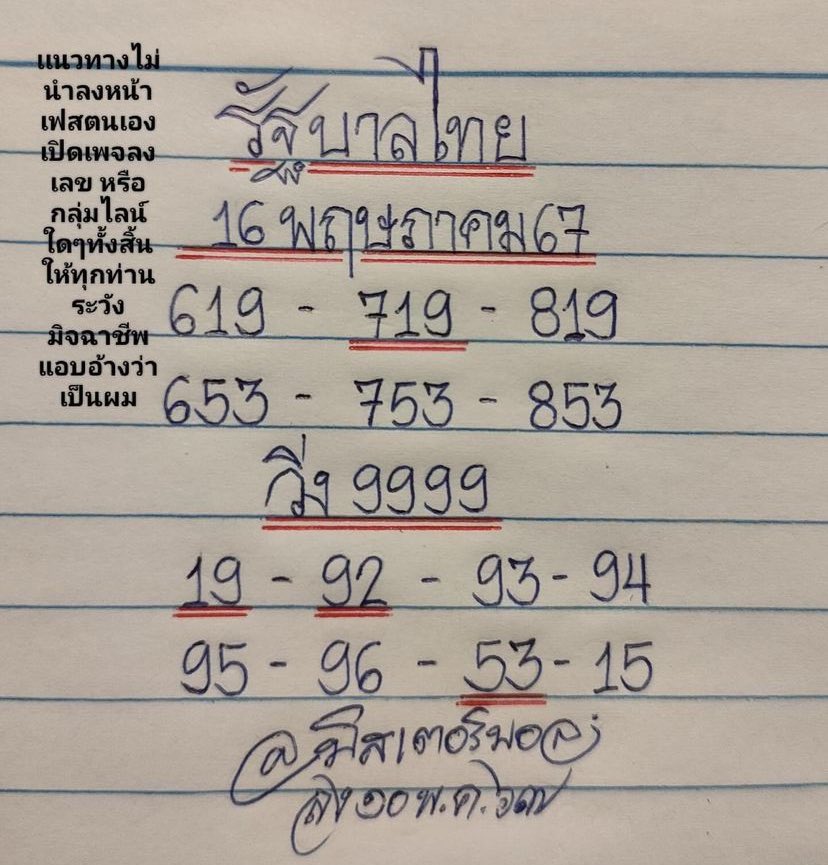 แนวทางไม่
นำลงหน้า
เฟสตนเอง
เปิดเพจลง
เลข หรือ
กลุ่มไลน์
ใดๆทั้งสิ้น
ให้ทุกท่าน
ระวัง
มิจฉาชีพ
แอบอ้างว่า
เป็นผม
รัฐบาลไทย
16 พฤษภาคม 67
619 - 719 - 819
653 - 753 - 853
วิ่ง 9999
19 - 92 - 93 - 94
95 - 96 - 53 - 15
@มีสเตอร์พอล
ส่ง ๑๐ พ.ค. ๖๗